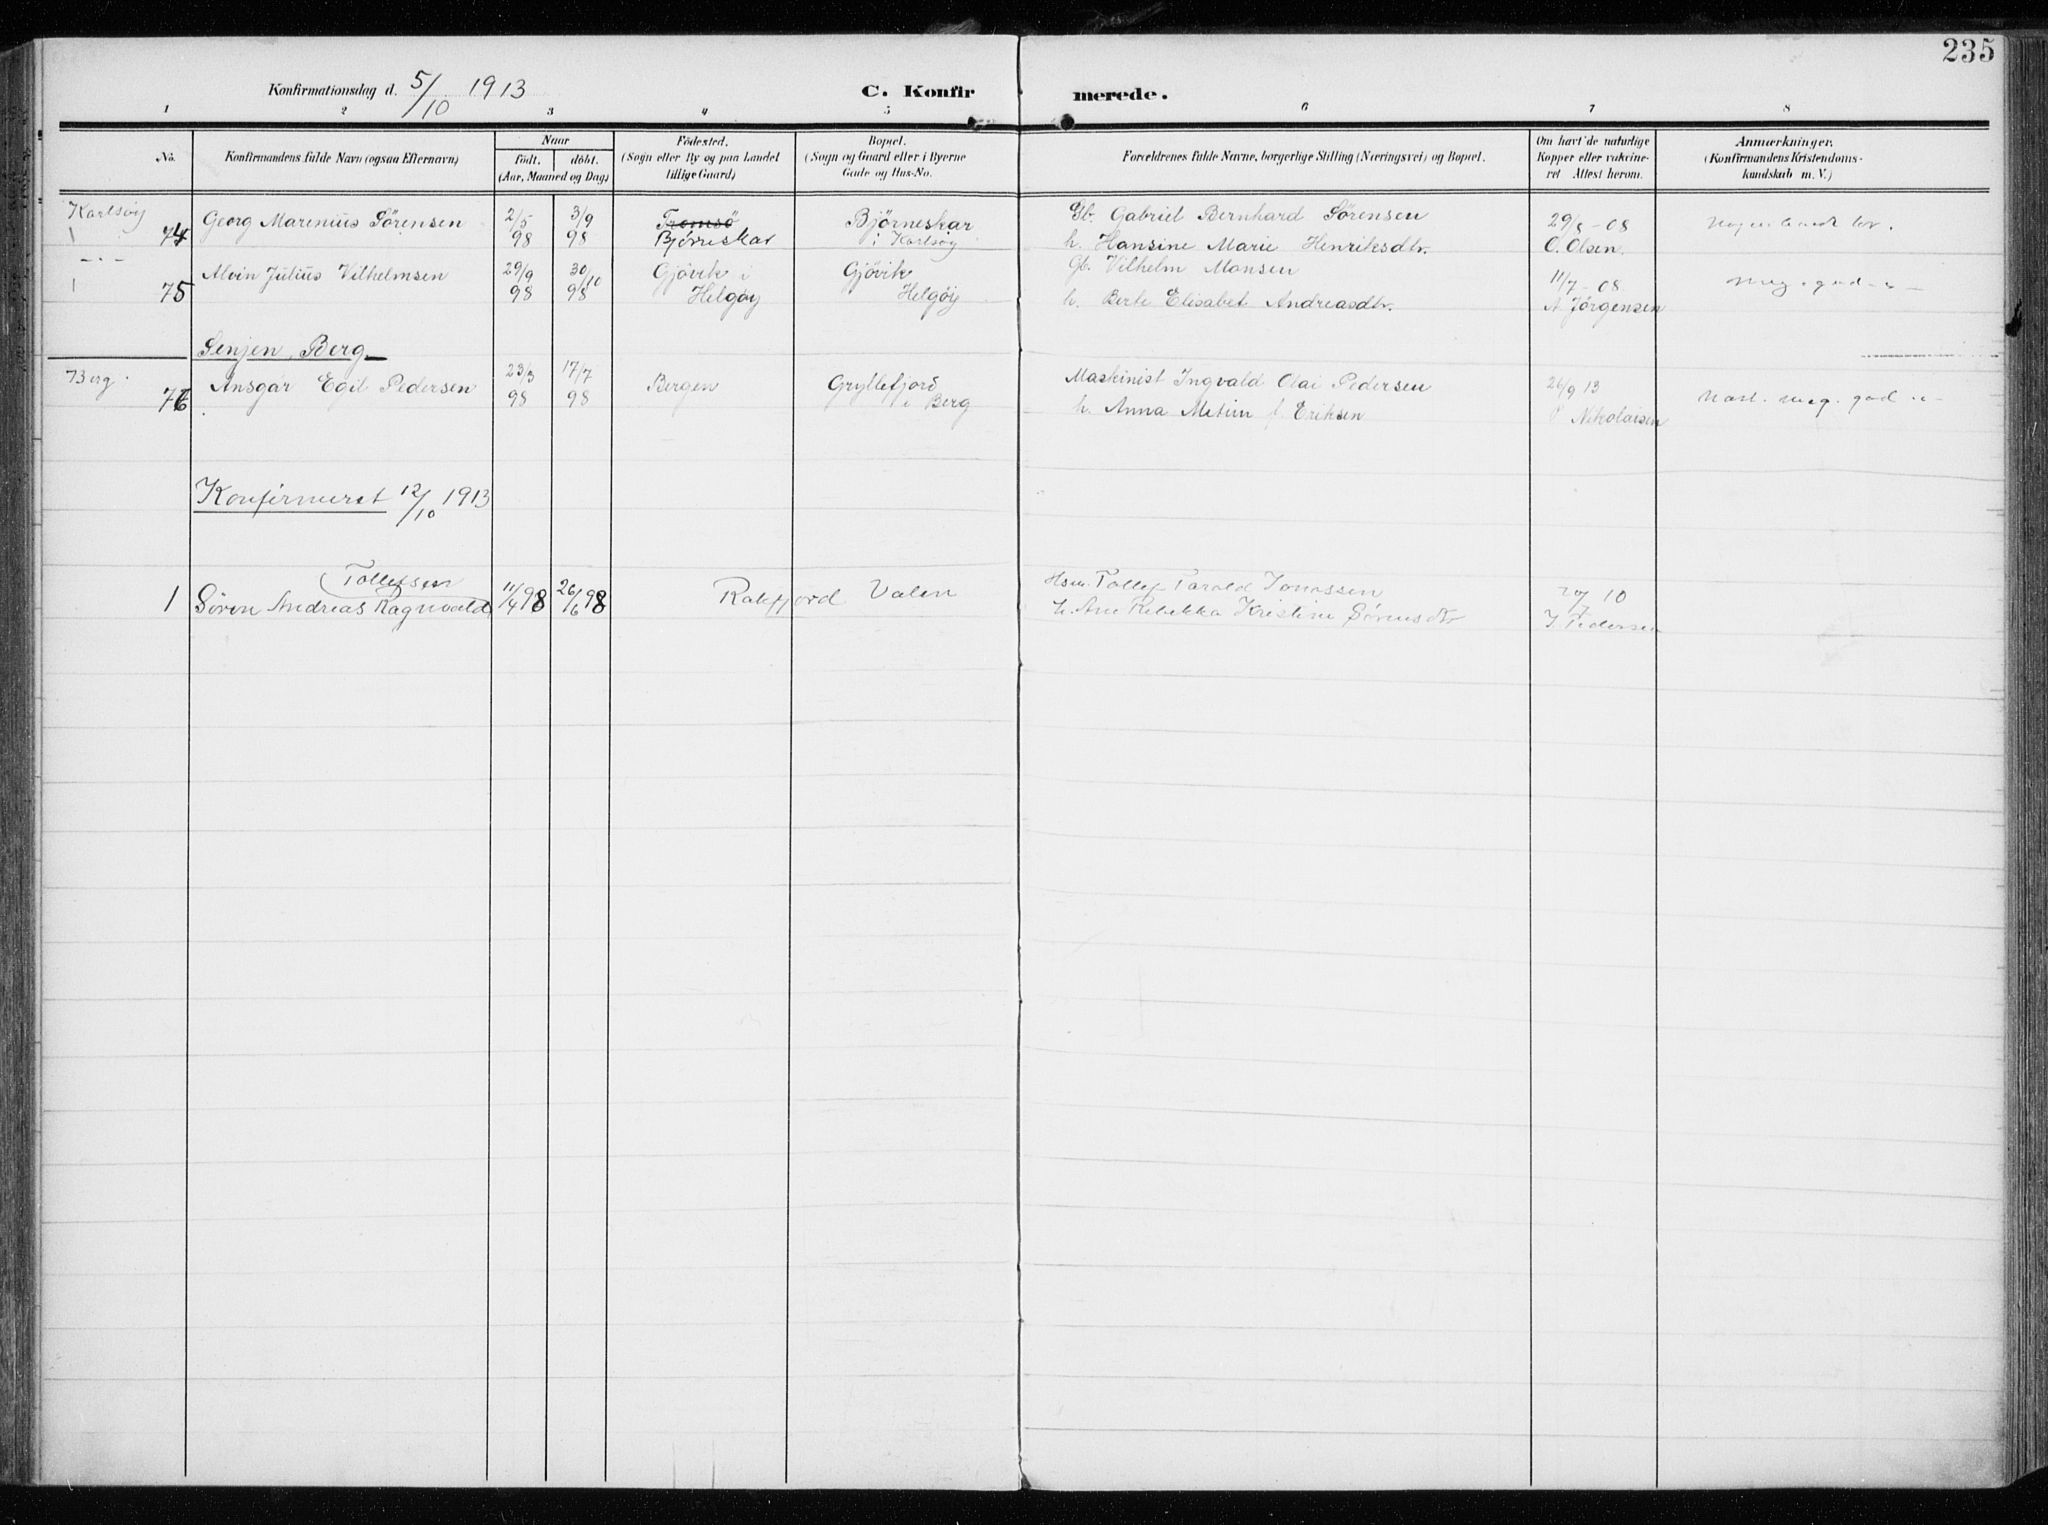 235
Konfirmationsdag d. 5/10 1913
C. Konfirmerede.
1 2 3 4 5 6 7 8
No.
Konfirmandens fulde Navn (ogsaa Efternavn)
Naar
födt. döbt.
(Aar, Maaned og Dag)
Födested.
(Sogn eller By og paa Landet
tillige Gaard)
Bopæl.
(Sogn og Gaard eller i Byerne
Gade og Hus-No.
Forældrenes fulde Navne, borgerlige Stilling (Næringsvei) og Bopæl.
Om havt de naturlige
Kopper eller vakcine-
ret Attest herom.
Anmærkninger.
(Konfirmandens Kristendoms-
kundskab m. V.)
Karlsøy
1 74 Georg Marenius Sørensen 2/5 98 3/9 98 Tromsø
Bjørneskar
Bjørneskar
i Karlsøy
Gb. Gabriel Bernhard Sørensen
h. Hansine Marie Henriksdtr.
29/8 - 08
O. Olsen.
- " -
1 75 Alvin Julius Vilhelmsen 29/9 98 30/10 98 Gjøvik i
Helgøy
Gjøvik
Helgøy
Gb. Vilhelm Monsen
h. Berte Elisabet Andreasdtr.
11/7 - 08
A Jørgensen
Meg. god
Senjen, Berg
Berg.
76 Ansgar Egil Pedersen 23/3 98 17/7 98 Bergen Gryllefjord
i Berg
Maskinist Ingvald Olai Pedersen
h. Anna Metine f. Eriksen
26/9 13
P Nikolaisen
Næst. meg. god
Konfirmeret 12/10 1913
Tollefsen
1 Søren Andreas Ragnvald 11/4 98 26/6 98 Rakfjord Valen
Hsm. Tollef Tarald Jonassen
h. Ane Rebekka Kristine Sørensdtr
20/7 10
J. Pedersen